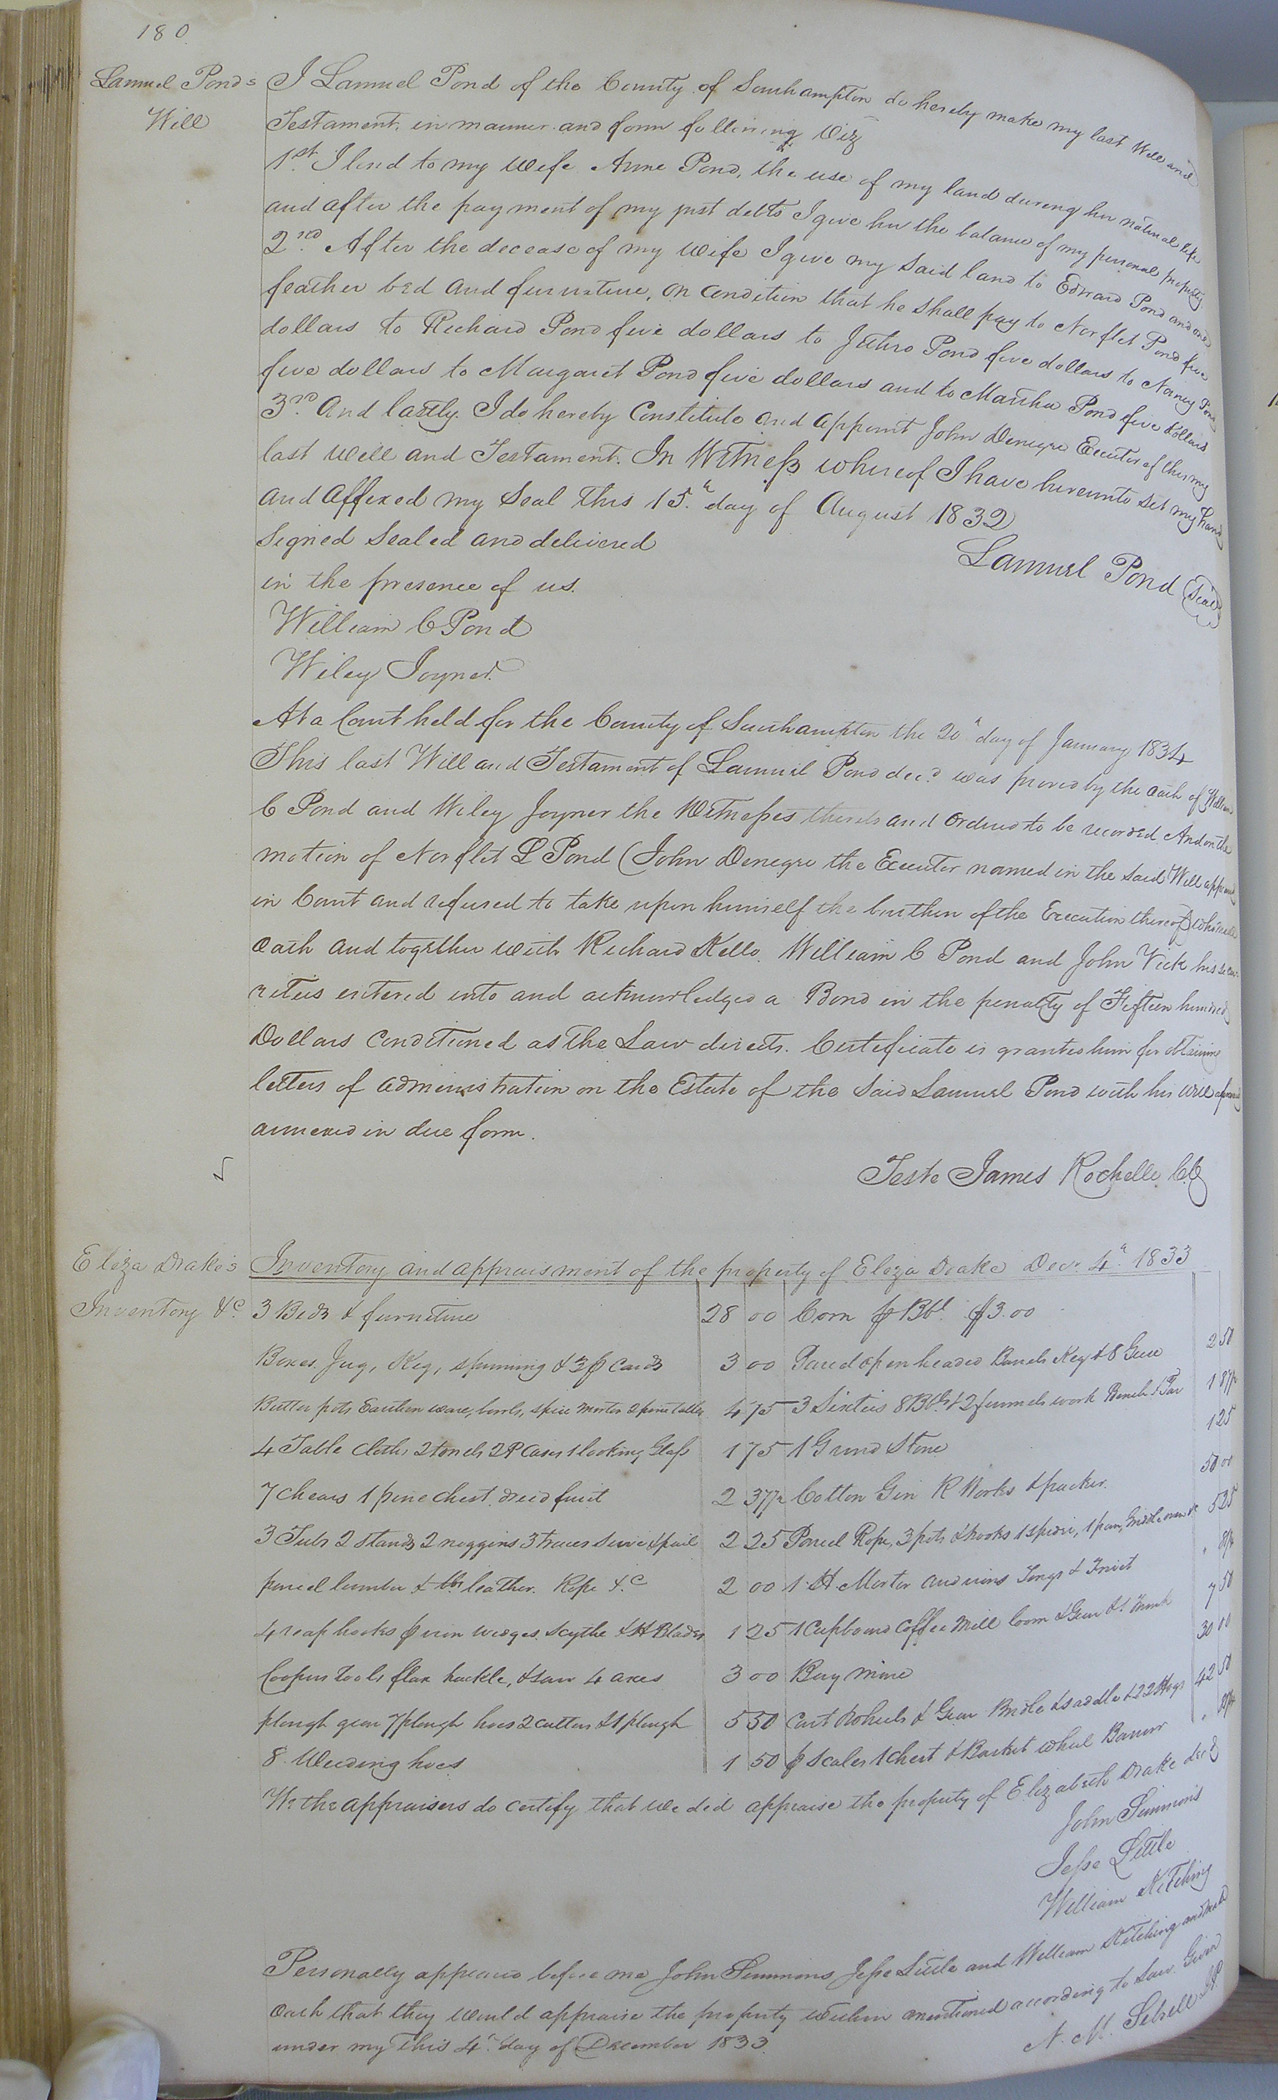 180
Samuel Pond's
Will
I Samuel Pond of the County of Southampton do hereby make my last Will and
Testament, in manner and form following Viz
1st. I lend to my wife Anne Pond, the use of my land during her natural life
and after the payment of my just debts I give her the balance of my personal property
2nd. After the decease of my wife I give my said land to Edward Pond and one
feather bed and furniture, on condition that he shall pay to Norflet Pond five
dollars to Richard Pond five dollars to Jethro Pond five dollars to Nancy Pond
five dollars to Margaret Pond five dollars and to Martha Pond five dollars
3rd. And lastly. I do hereby Constitute and appoint John Denegre Executor of this my
last will and Testament. In Witness whereof I have hereunto set my hand
and affixed my Seal this 15th day of August 1832
Signed Sealed and delivered
in the presence of us.
Samuel Pond (Seal)
William C Pond
Wiley Joyner.
At a Court held for the County of Southampton the 20th day of January 1834
This last Will and Testament of Samuel Pond decd was proved by the oath of William
C Pond and Wiley Joyner the Witnesses thereto and ordered to be recorded And on the
motion of Norflet L Pond (John Denegre the Executor named in the said Will appeared
in Court and refused to take upon himself the burthen of the Execution thereof) who made
oath and together with Richard Kello. William C Pond and John Vick his secu-
rities entered into and acknowledged a Bond in the penalty of Fifteen hundred
Dollars conditioned as the Law directs. Certificate is granted him for obtaining
letters of administration on the Estate of the said Samuel Pond with his will aforesaid
annexed in due form.
Teste James Rochelle C.C
Eliza Drake's
Inventory &c.
Inventory and appraisment of the property of Eliza Drake Decr. 4th 1833
3 Beds & furniture 28 00 Corn Bbl. $3.00
Boxes, Jug, Keg, spinning & cards 3 00 Parcel open headed Barrels Keg & 8 Geese 2 50
Butter pots Earthen ware, bowls, spice morter 2 pine tables 4 75 3 Sixties 8 Bbls & 2 funnels work Bench & Tar 1 87½
4 Table cloths 2 towels 2 P Cases 1 looking Glass 1 75 1 Grind Stone 1 25
7 chears 1 pine chest dried fruit 2 37½ Cotton Gin R Works & packer. 50 00
3 Tubs 2 stands 2 noggins 3 trases sieve & pail 2 25 Parcel Rope, 3 pots & hooks 1 spider, 1 pan, Gridle &c 5 25
parcel lumber & leather. Rope &c 2 00 1 Morter and irons Tongs & Trivit
4 reap hooks iron wedges Scythe & Blades 1 25 1 Cupboard coffee Mill loom & Gear & Trunk 7 50
Coopers tools flax hackle, & saw 4 axes 3 00 Bay mare 30 00
plough gear 7 plough hoes 2 cutters & 1 plough 5 50 cart Wheels & Gear Bridle & saddle & 22 Hogs 42 50
8 Weeding hoes 1 50 Scales 1 chest & Basket wheel Barrow
We the appraisers do certify that we did appraise the property of Elizabeth Drake decd
John Simmons
Jesse Little
William Kitching
Personally appeared before me John Simmons Jesse Little and William Kitching and made
oath that they would appraise the property within mentioned according to Law. Given
under my This 4th day of December 1833.
N. M. Sebrell JP